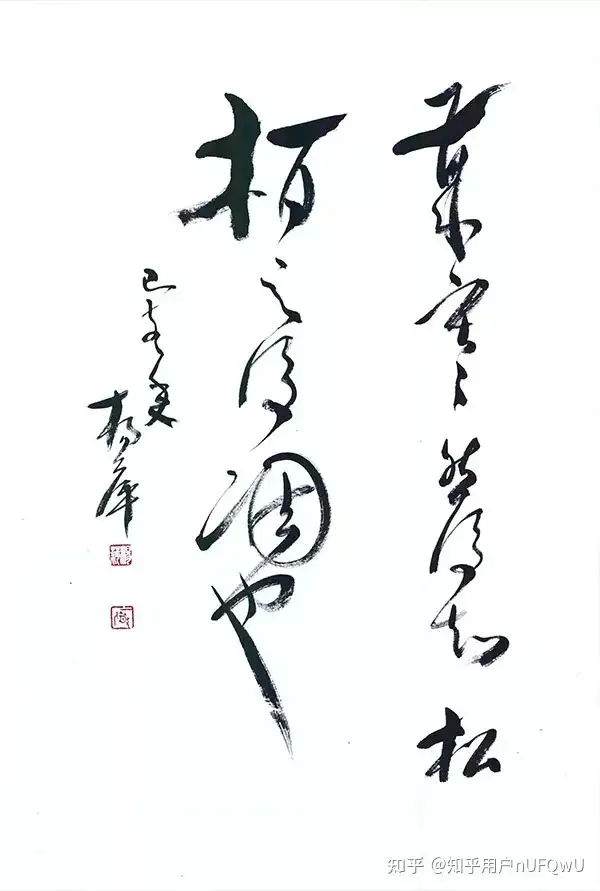 歲寒然後知松
柏之後凋也
己亥夏
楊
知乎 @知乎用户nUFQwU